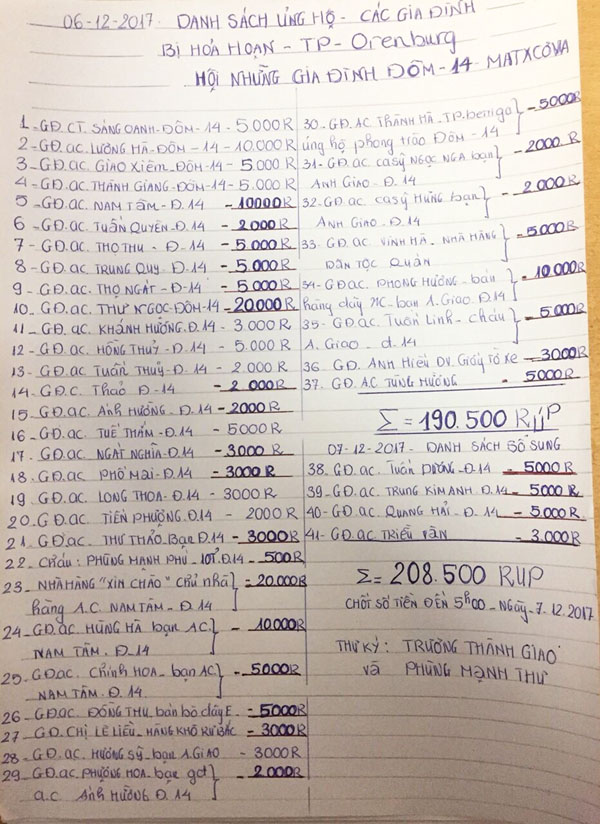 06-12-2017. DANH SÁCH ỦNG HỘ - CÁC GIA ĐÌNH
BỊ HOẢ HOẠN - TP - Orenburg
HỘI NHỮNG GIA ĐÌNH ĐÔM-14- MATXCƠVA
1-GĐ.CT. SÁNG OANH-ĐÔM-14 - 5.000 R
2-GĐ.ac. LƯƠNG HÀ-ĐÔM-14 - 10.000 R
3-GĐ.ac. GIAO XIÊM-ĐÔM-14 - 5.000 R
4-GĐ.ac. THÀNH GIANG-ĐÔM-14- 5.000 R
5-GĐ.ac. NAM TÂM-Đ.14 - 10000 R
6-GĐ.ac. TUẤN QUYÊN-Đ.14 - 2000 R
7-GĐ.ac. THỌ THU - Đ.14 - 5.000 R
8-GĐ.ac. TRUNG QUY-Đ.14 - 5.000 R
9-GĐ.ac. THỌ NGÁT-Đ.14 - 5.000 R
10.GĐ.ac. THƯ NGỌC-ĐÔM-14-20.000 R
11-GĐ.ac. KHÁNH HƯƠNG.Đ.14 - 3.000 R
12-GĐ.ac. HỒNG THUỶ-Đ.14 - 5.000 R
13-GĐ.ac. TUẤN THUỶ-Đ.14 - 2.000 R
14-GĐ.C. THẢO Đ-14 - 2 000 R
15-GĐ.ac. ANH HƯƠNG.Đ.14 -2000 R
16-GĐ.ac. TUẾ THẮM-Đ.14 - 5000 R
17-GĐ.ac. NGÁT NGHĨA-Đ.14 - 3000 R
18-GĐ.ac. PHỐ MAI-Đ.14 - 3000 R
19-GĐ.ac. LONG THOA-Đ.14 - 3000 R
20-GĐ.ac. TIẾN PHƯỢNG.Đ.14 - 2000 R
21-GĐ.ac. THƯ THẢO Bạn Đ.14 - 3000 R
22-CHÁU: PHÙNG MẠNH PHÚ-10T.Đ.14 - 500 R
23-NHÀ HÀNG "XIN CHÀO" chủ nhà } = 20.000 R
hàng A.C NAM TÂM-Đ.14
24-GĐ.ac HÙNG HÀ bạn AC } - 10.000 R
NAM TÂM.Đ.14
25-GĐac. Chính HOA-bạn AC } - 5000 R
NAM TÂM.Đ.14
26-GĐac. ĐÔNG THU bán bò dãy E. - 5000 R
27-GĐ.CHỊ LÊ LIỄU-HÀNG KHÔ RƯ BẮC - 3000 R
28-GĐ.ac. HƯƠNG SỸ-bạn A.GIAO - 3000 R
29-GĐ.ac. PHƯƠNG HOA-bạn gđ } - 2000 R
a.c Anh HƯƠNG Đ.14
30-GĐ.AC THÀNH HÀ-TP. } - 5000 R
ủng hộ phong trào ĐÔM-14
31-GĐ.ac. ca sỹ NGỌC NGA bạn } - 2000 R
ANH GIAO.Đ.14
32-GĐ.ac. ca sỹ HÙNG bạn } - 2.000 R
ANH GIAO.Đ.14
33-GĐ.ac. VINH HÀ-NHÀ HÀNG } - 5000 R
DÂN TỘC QUÁN
34-GĐac. PHONG HƯƠNG-bán } - 10.000 R
hàng dãy -bạn A.Giao.Đ.14
35-GĐ.ac. Tuấn Linh-cháu } - 5.000 R
A.Giao-Đ.14
36-GĐ. ANH Hiếu DV. Giấy tờ xe - 3000 R
37-GĐ. AC TÙNG HƯƠNG - 5000 R
Σ = 190.500 RÚP
07-12-2017- DANH SÁCH BỔ SUNG
38-GĐ.ac. Tuấn DƯƠNG-Đ.14 - 5000 R
39-GĐ.ac. TRUNG KIM ANH.Đ.14 - 5000 R
40-GĐ.ac QUANG HẢI-Đ.14 - 5.000 R
41-GĐ.ac TRIỀU VÂN - 3.000 R
Σ = 208.500 RUP
CHỐT SỐ TIỀN ĐẾN 5h00 - Ngày-7.12.2017
THƯ KÝ: TRƯƠNG THÀNH GIAO
và PHÙNG MẠNH THƯ